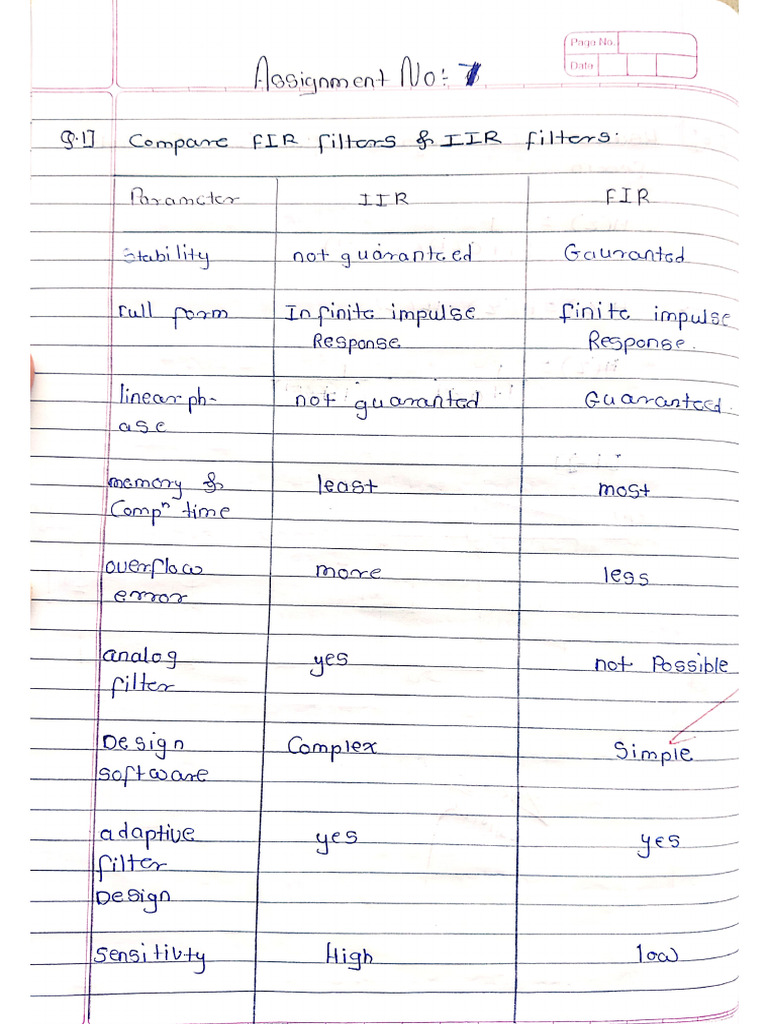 Page No.
Date
Assignment No: 7
Q.1] Compare FIR filters & IIR filters:
Parameter IIR FIR
Stability not guaranteed Gauranted
Full form Infinite impulse finite impulse
Response Response.
linear ph- not guaranted Guaranteed.
ase
memory & least most
Compⁿ time
overflow more less
error
analog yes not Possible
filter
Design Complex Simple
software
adaptive yes yes
filter
Design
sensitivty High low